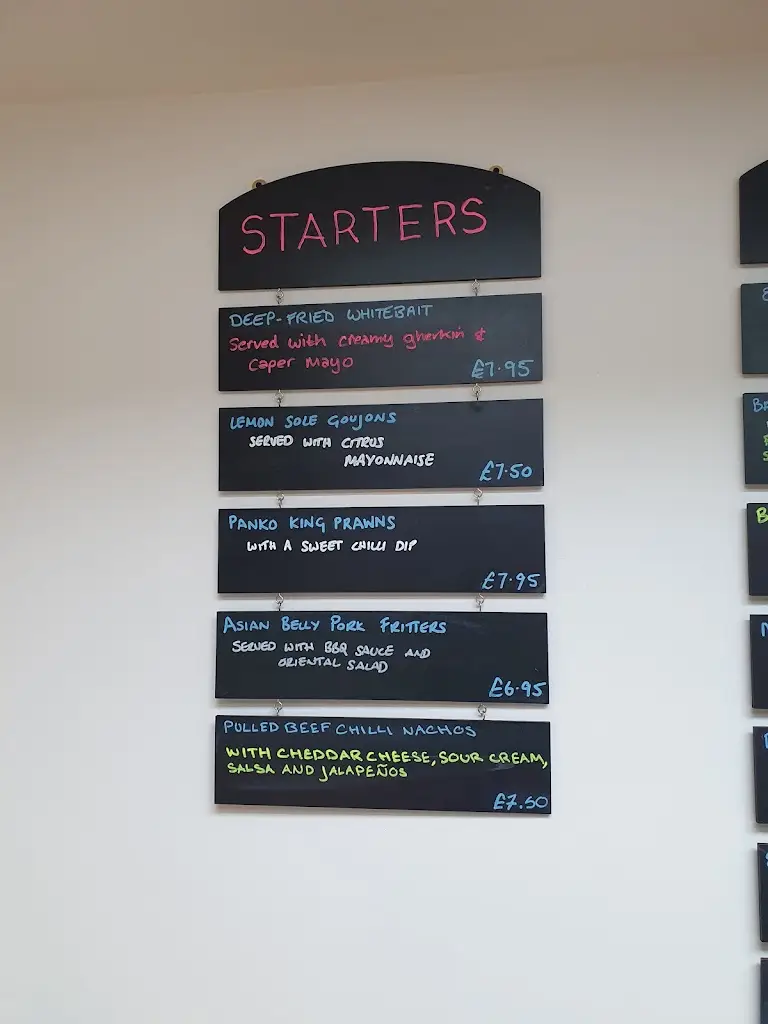 STARTERS
DEEP-FRIED WHITEBAIT
Served with creamy gherkin &
Caper Mayo
£7.95
LEMON SOLE GOUJONS
SERVED WITH CITRUS
MAYONNAISE
£7.50
PANKO KING PRAWNS
WITH A SWEET CHILLI DIP
£7.95
ASIAN BELLY PORK FRITTERS
SERVED WITH BBQ SAUCE AND
ORIENTAL SALAD
£6.95
PULLED BEEF CHILLI NACHOS
WITH CHEDDAR CHEESE, SOUR CREAM,
SALSA AND JALAPEÑOS
£7.50